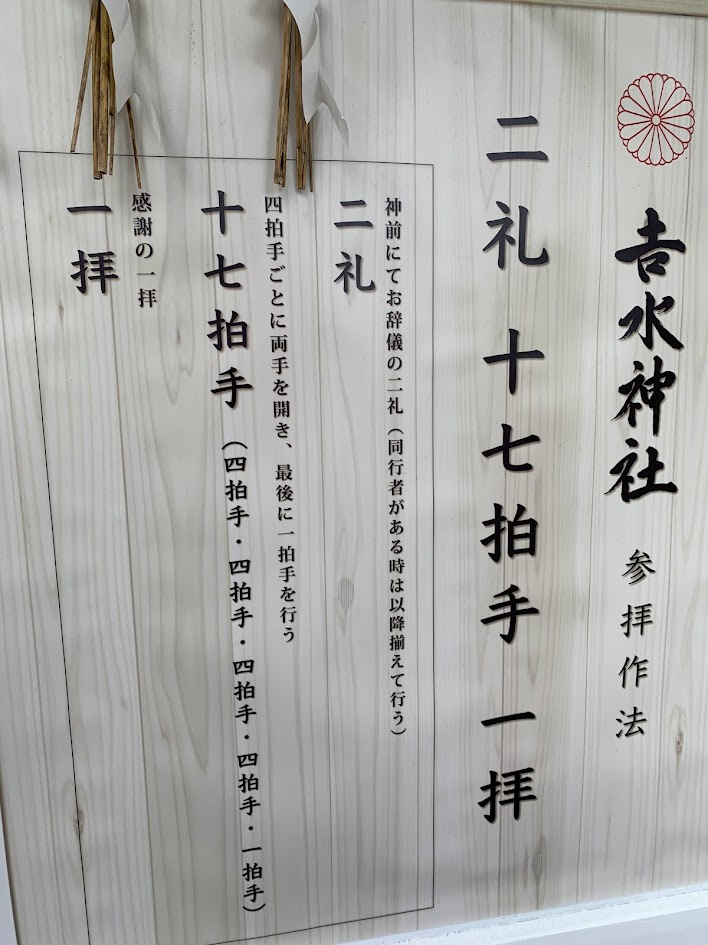 𠮷水神社 参拝作法
二礼 十七拍手 一拝
神前にてお辞儀の二礼（同行者がある時は以降揃えて行う）
二礼
四拍手ごとに両手を開き、最後に一拍手を行う
十七拍手（四拍手・四拍手・四拍手・四拍手・一拍手）
感謝の一拝
一拝